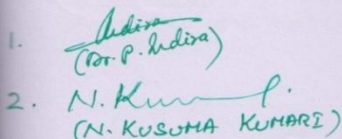 1. Indira
(Dr. P. Indira)
2. N. Kum
(N. KUSUMA KUMARI)